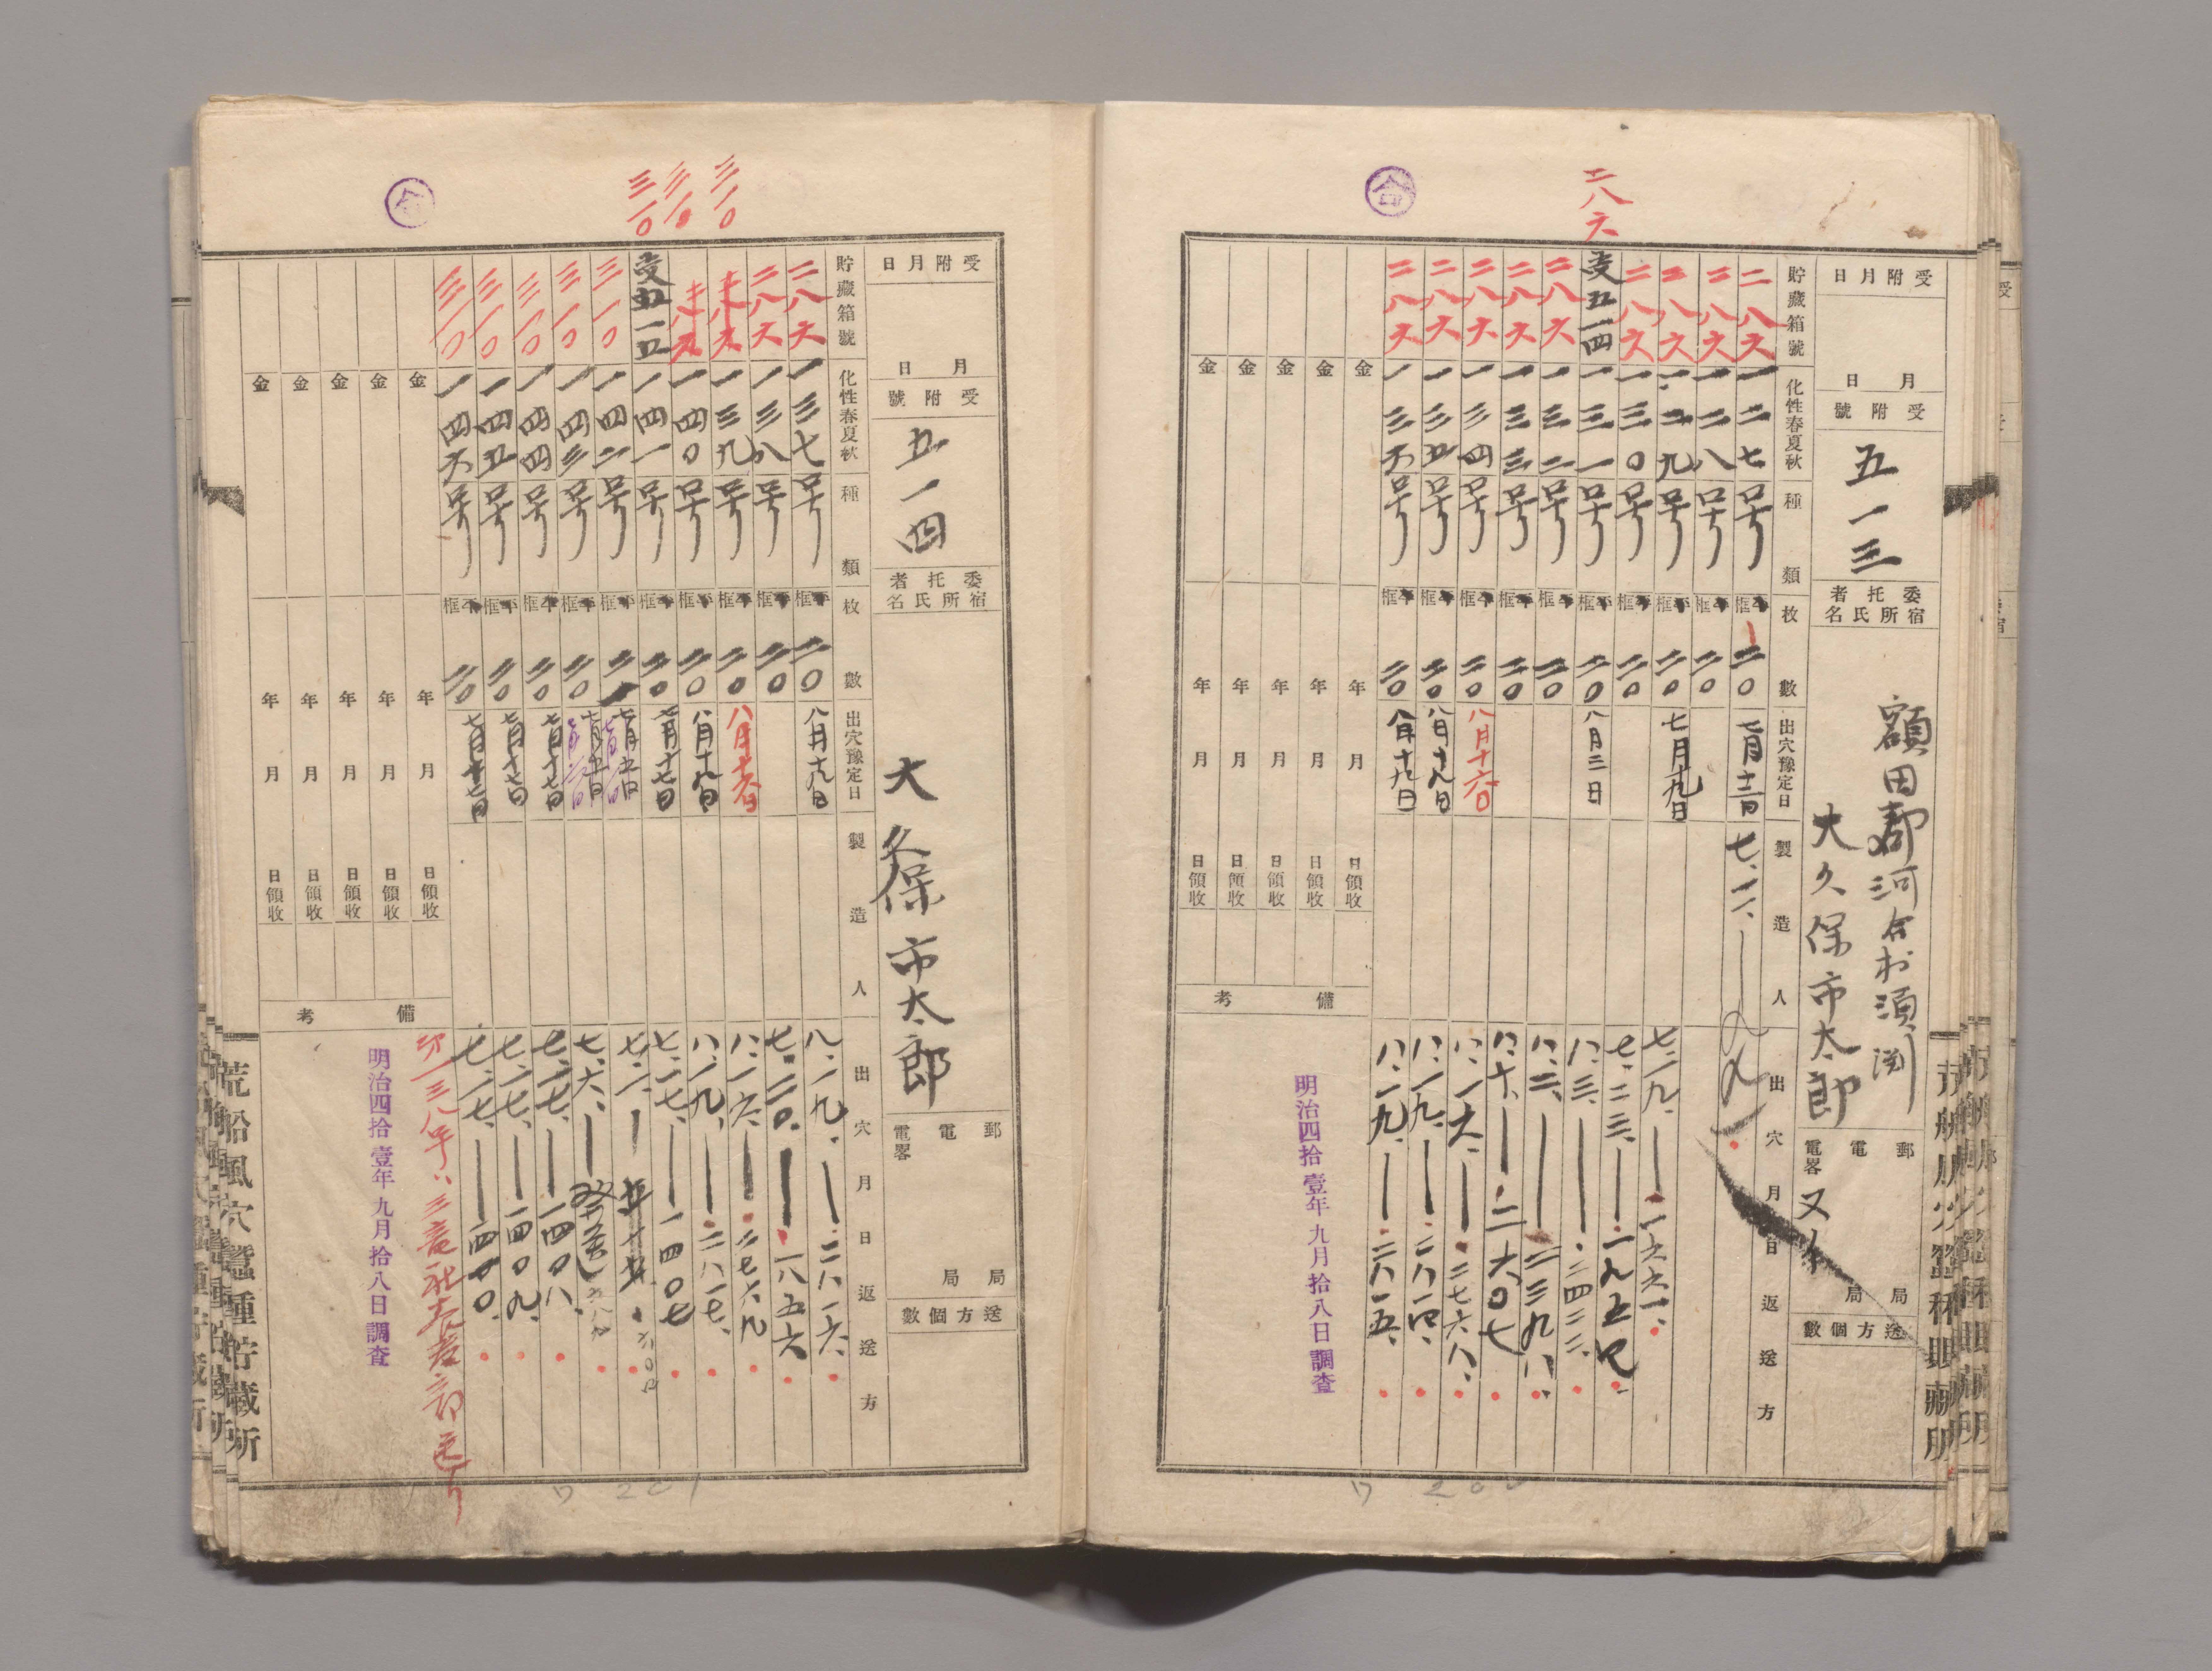 二八六
合
受附月日
月日
受附號
五一三
委托者
宿所氏名
額田郡河合村須渕
大久保市太郎
郵電
電畧
局局
送方個數
貯藏箱號
化性春夏秋種類
枚數
出穴豫定日
製造人
出穴月日返送方
二八六 一二七号 平框 二〇 七、一一、
二八六 一二八号 平框 二〇
二八六 一二九号 平框 二〇 七月十九日 七、一九、一六六一、
二八六 一三〇号 平框 二〇 七、二三、一九五七、
受五一四 一三一号 平框 二〇 八月三日 八、三、二四二二、
二八六 一三二号 平框 二〇 八、二、二三九八、
二八六 一三三号 平框 二〇 八、十、二六〇七
二八六 一三四号 平框 二〇 八月十六日 八、一六、二七六八、
二八六 一三五号 平框 二〇 八月十九日 八、一九、二八一四、
二八六 一三六号 平框 二〇 八月十九日 八、一九、二八一五、
金 年 月 日領收
金 年 月 日領收
金 年 月 日領收
金 年 月 日領收
金 年 月 日領收
備考
明治四拾壹年九月拾八日調査
三一〇
三一〇
三一〇
合
受附月日
月日
受附號
五一四
委托者
宿所氏名
大久保市太郎
郵電
電畧
局局
送方個數
貯藏箱號
化性春夏秋種類
枚數
出穴豫定日
製造人
出穴月日返送方
二八六 一三七号 平框 二〇 八月十九日 八、一九、二八一六、
二八六 一三八号 平框 二〇 七、二〇、一八五六
一三九号 平框 二〇 八月十六日 八、一六、二七六九
一四〇号 平框 二〇 八月十九日 八、一九、二八一七、
受五一五 一四一号 平框 二〇 七月十七日 七、一七、一四〇七
三一〇 一四二号 平框
三一〇 一四三号 平框 二〇 七、六、
三一〇 一四四号 平框 二〇 七月十七日 七、一七、一四〇八、
三一〇 一四五号 平框 二〇 七月十七日 七、一七、一四〇九、
三一〇 一四六号 平框 二〇 七、一七、一四一〇、
金 年 月 日領收
金 年 月 日領收
金 年 月 日領收
金 年 月 日領收
金 年 月 日領收
備考
明治四拾壹年九月拾八日調査
荒船風穴蠶種貯藏所
ワ 201
ワ 200